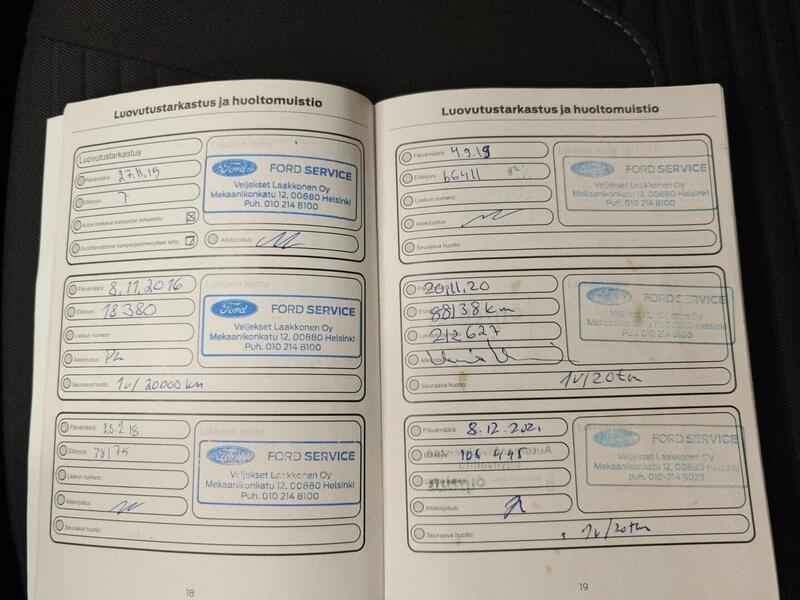 Luovutustarkastus ja huoltomuistio
Luovutustarkastus
Päivämäärä: 27.11.15
Etäisyys: 7
Autoa koskevat kampanjat tarkastettu:
Suorittamattomat kampanjatoimenpiteet tehty:
Allekirjoitus:
Liikkeen leima
Ford FORD SERVICE
Veljekset Laakkonen Oy
Mekaanikonkatu 12, 00880 Helsinki
Puh. 010 214 8100
Päivämäärä: 8.11.2016
Etäisyys: 18380
Laskun numero:
Allekirjoitus:
Seuraava huolto: 1v/20000 km
Liikkeen leima
Ford FORD SERVICE
Veljekset Laakkonen Oy
Mekaanikonkatu 12, 00880 Helsinki
Puh. 010 214 8100
Päivämäärä:
Etäisyys:
Laskun numero:
Allekirjoitus:
Seuraava huolto:
Liikkeen leima
Ford FORD SERVICE
Veljekset Laakkonen Oy
Mekaanikonkatu 12, 00880 Helsinki
Puh. 010 214 8100
18
Luovutustarkastus ja huoltomuistio
Päivämäärä:
Etäisyys: 66411
Laskun numero:
Allekirjoitus:
Seuraava huolto:
Ford FORD SERVICE
Veljekset Laakkonen Oy
Mekaanikonkatu 12, 00880 Helsinki
Puh. 010 214 8100
Päivämäärä: 20.11.20
88138 km
212627
Seuraava huolto: 1v/20tkm
Ford FORD SERVICE
Veljekset Laakkonen Oy
Mekaanikonkatu 12, 00880 Helsinki
Puh. 010 214 8100
Päivämäärä: 8.12.2021
106 445
Allekirjoitus:
Seuraava huolto: 1v/20tkm
Ford FORD SERVICE
Veljekset Laakkonen Oy
Mekaanikonkatu 12, 00880 Helsinki
puh. 010-214 9023
19